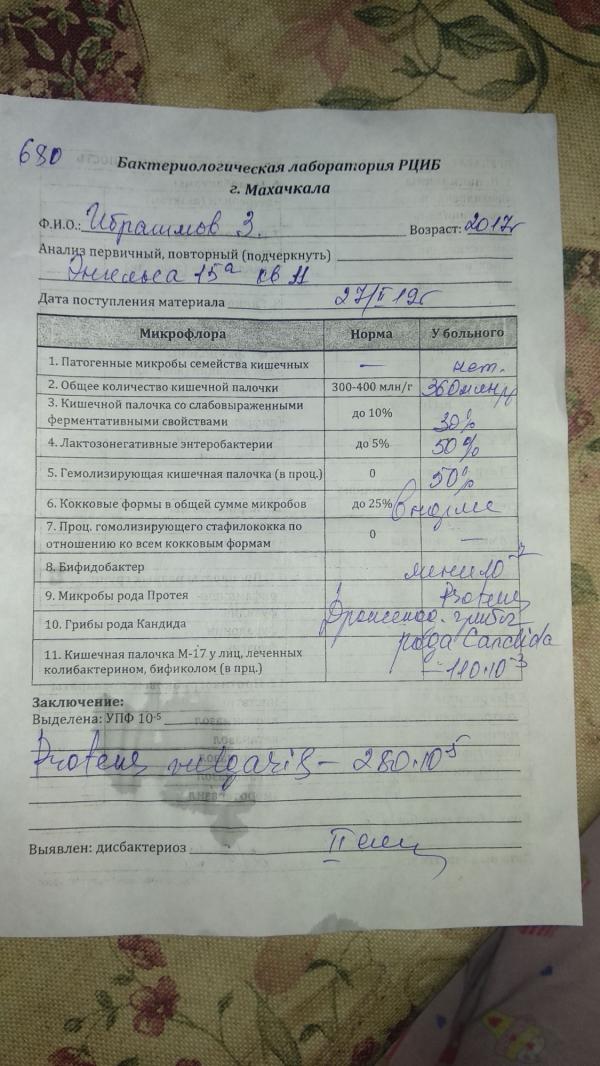 680
Бактериологическая лаборатория РЦИБ
г. Махачкала
Ф.И.О.: Ибрагимов З. Возраст: 2017г
Анализ первичный, повторный (подчеркнуть)
Энгельса 15а кв 11
Дата поступления материала 27/II 19г
Микрофлора Норма У больного
1. Патогенные микробы семейства кишечных — нет.
2. Общее количество кишечной палочки 300-400 млн/г 360млн/г
3. Кишечной палочка со слабовыраженными
ферментативными свойствами до 10% 30%
4. Лактозонегативные энтеробактерии до 5% 50%
5. Гемолизирующая кишечная палочка (в проц.) 0 50%
6. Кокковые формы в общей сумме микробов до 25% В норме
7. Проц. гомолизирующего стафилококка по
отношению ко всем кокковым формам 0 —
8. Бифидобактер 10-7
9. Микробы рода Протея Proteus
10. Грибы рода Кандида Дрожжепод. грибы
рода Candida
11. Кишечная палочка М-17 у лиц, леченных
колибактерином, бификолом (в прц.) – 110·10-3
Заключение:
Выделена: УПФ 10-5
Proteus vulgaris – 280·10-5
Выявлен: дисбактериоз II степ